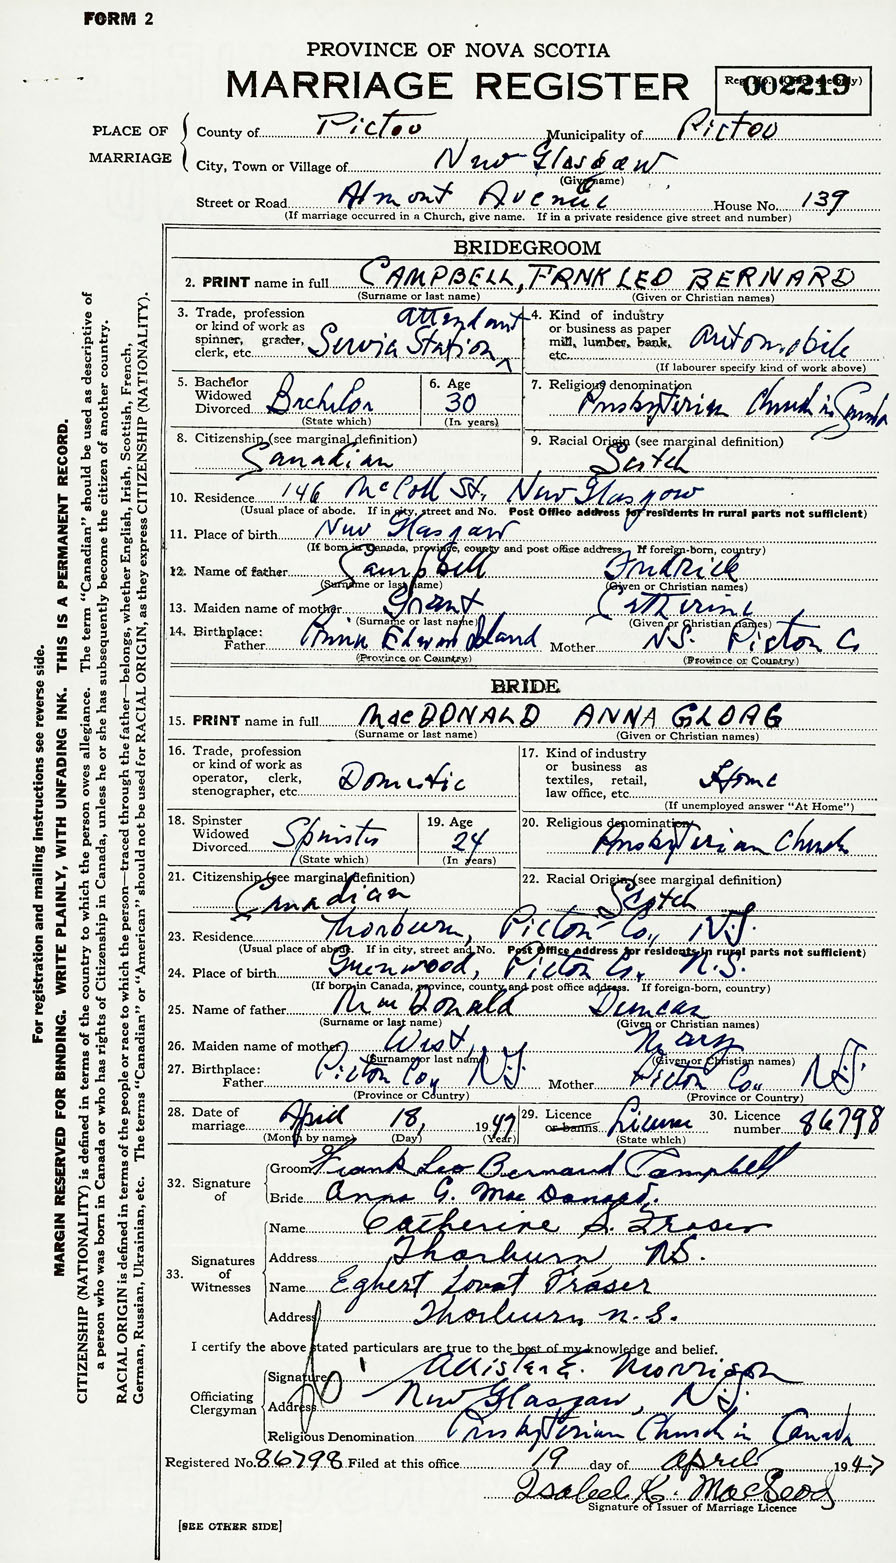 FORM 2
PROVINCE OF NOVA SCOTIA
MARRIAGE REGISTER
Reg. No. (Office use only)
002219
PLACE OF MARRIAGE
County of Pictou Municipality of Pictou
City, Town or Village of New Glasgow
(Give name)
Street or Road Almont Avenue House No. 139
(If marriage occurred in a Church, give name. If in a private residence give street and number)
BRIDEGROOM
2. PRINT name in full CAMPBELL, FRNK LEO BERNARD
(Surname or last name) (Given or Christian names)
3. Trade, profession or kind of work as spinner, grader, clerk, etc. Service Station attendant
4. Kind of industry or business as paper mill, lumber, bank, etc. Automobile
(If labourer specify kind of work above)
5. Bachelor Widowed Divorced Bachelor
(State which)
6. Age 30
(In years)
7. Religious denomination Presbyterian Church in Canada
8. Citizenship (see marginal definition) Canadian
9. Racial Origin (see marginal definition) Scotch
10. Residence 146 McColl St., New Glasgow
(Usual place of abode. If in city, street and No. Post Office address for residents in rural parts not sufficient)
11. Place of birth New Glasgow
(If born in Canada, province, county and post office address. If foreign-born, country)
12. Name of father Campbell
(Surname or last name) (Given or Christian names)
13. Maiden name of mother Grant Catherine
(Surname or last name) (Given or Christian names)
14. Birthplace: Father Prince Edward Island Mother N.S. Pictou Co
(Province or Country) (Province or Country)
BRIDE
15. PRINT name in full MacDONALD ANNA GLOAG
(Surname or last name) (Given or Christian names)
16. Trade, profession or kind of work as operator, clerk, stenographer, etc. Domestic
17. Kind of industry or business as textiles, retail, law office, etc. Home
(If unemployed answer "At Home")
18. Spinster Widowed Divorced Spinster
(State which)
19. Age 24
(In years)
20. Religious denomination Presbyterian Church
21. Citizenship (see marginal definition) Canadian
22. Racial Origin (see marginal definition) Scotch
23. Residence Thorburn, Pictou Co., N.S.
(Usual place of abode. If in city, street and No. Post Office address for residents in rural parts not sufficient)
24. Place of birth Greenwood, Pictou Co., N.S.
(If born in Canada, province, county and post office address. If foreign-born, country)
25. Name of father MacDonald Duncan
(Surname or last name) (Given or Christian names)
26. Maiden name of mother West, Mary
(Surname or last name) (Given or Christian names)
27. Birthplace: Father Pictou Co., N.S. Mother Pictou Co., N.S.
(Province or Country) (Province or Country)
28. Date of marriage April 18, 1947
(Month by name) (Day) (Year)
29. Licence or banns License
(State which)
30. Licence number 86798
32. Signature of
Groom Frank Leo Bernard Campbell
Bride Anna G. MacDonald.
33. Signatures of Witnesses
Name Catherine S. Fraser
Address Thorburn N.S.
Name Egbert Lovat Fraser
Address Thorburn N.S.
I certify the above stated particulars are true to the best of my knowledge and belief.
Officiating Clergyman
Signature Allister E. Morrison
Address New Glasgow, N.S.
Religious Denomination Presbyterian Church in Canada
Registered No. 86798 Filed at this office 19 day of April 1947
Isabel K. MacLeod
Signature of Issuer of Marriage Licence
[SEE OTHER SIDE]
For registration and mailing instructions see reverse side.
MARGIN RESERVED FOR BINDING. WRITE PLAINLY, WITH UNFADING INK. THIS IS A PERMANENT RECORD.
CITIZENSHIP (NATIONALITY) is defined in terms of the country to which the person owes allegiance. The term "Canadian" should be used as descriptive of
a person who was born in Canada or who has rights of Citizenship in Canada, unless he or she has subsequently become the citizen of another country.
RACIAL ORIGIN is defined in terms of the people or race to which the person—traced through the father—belongs, whether English, Irish, Scottish, French,
German, Russian, Ukrainian, etc. The terms "Canadian" or "American" should not be used for RACIAL ORIGIN, as they express CITIZENSHIP (NATIONALITY).